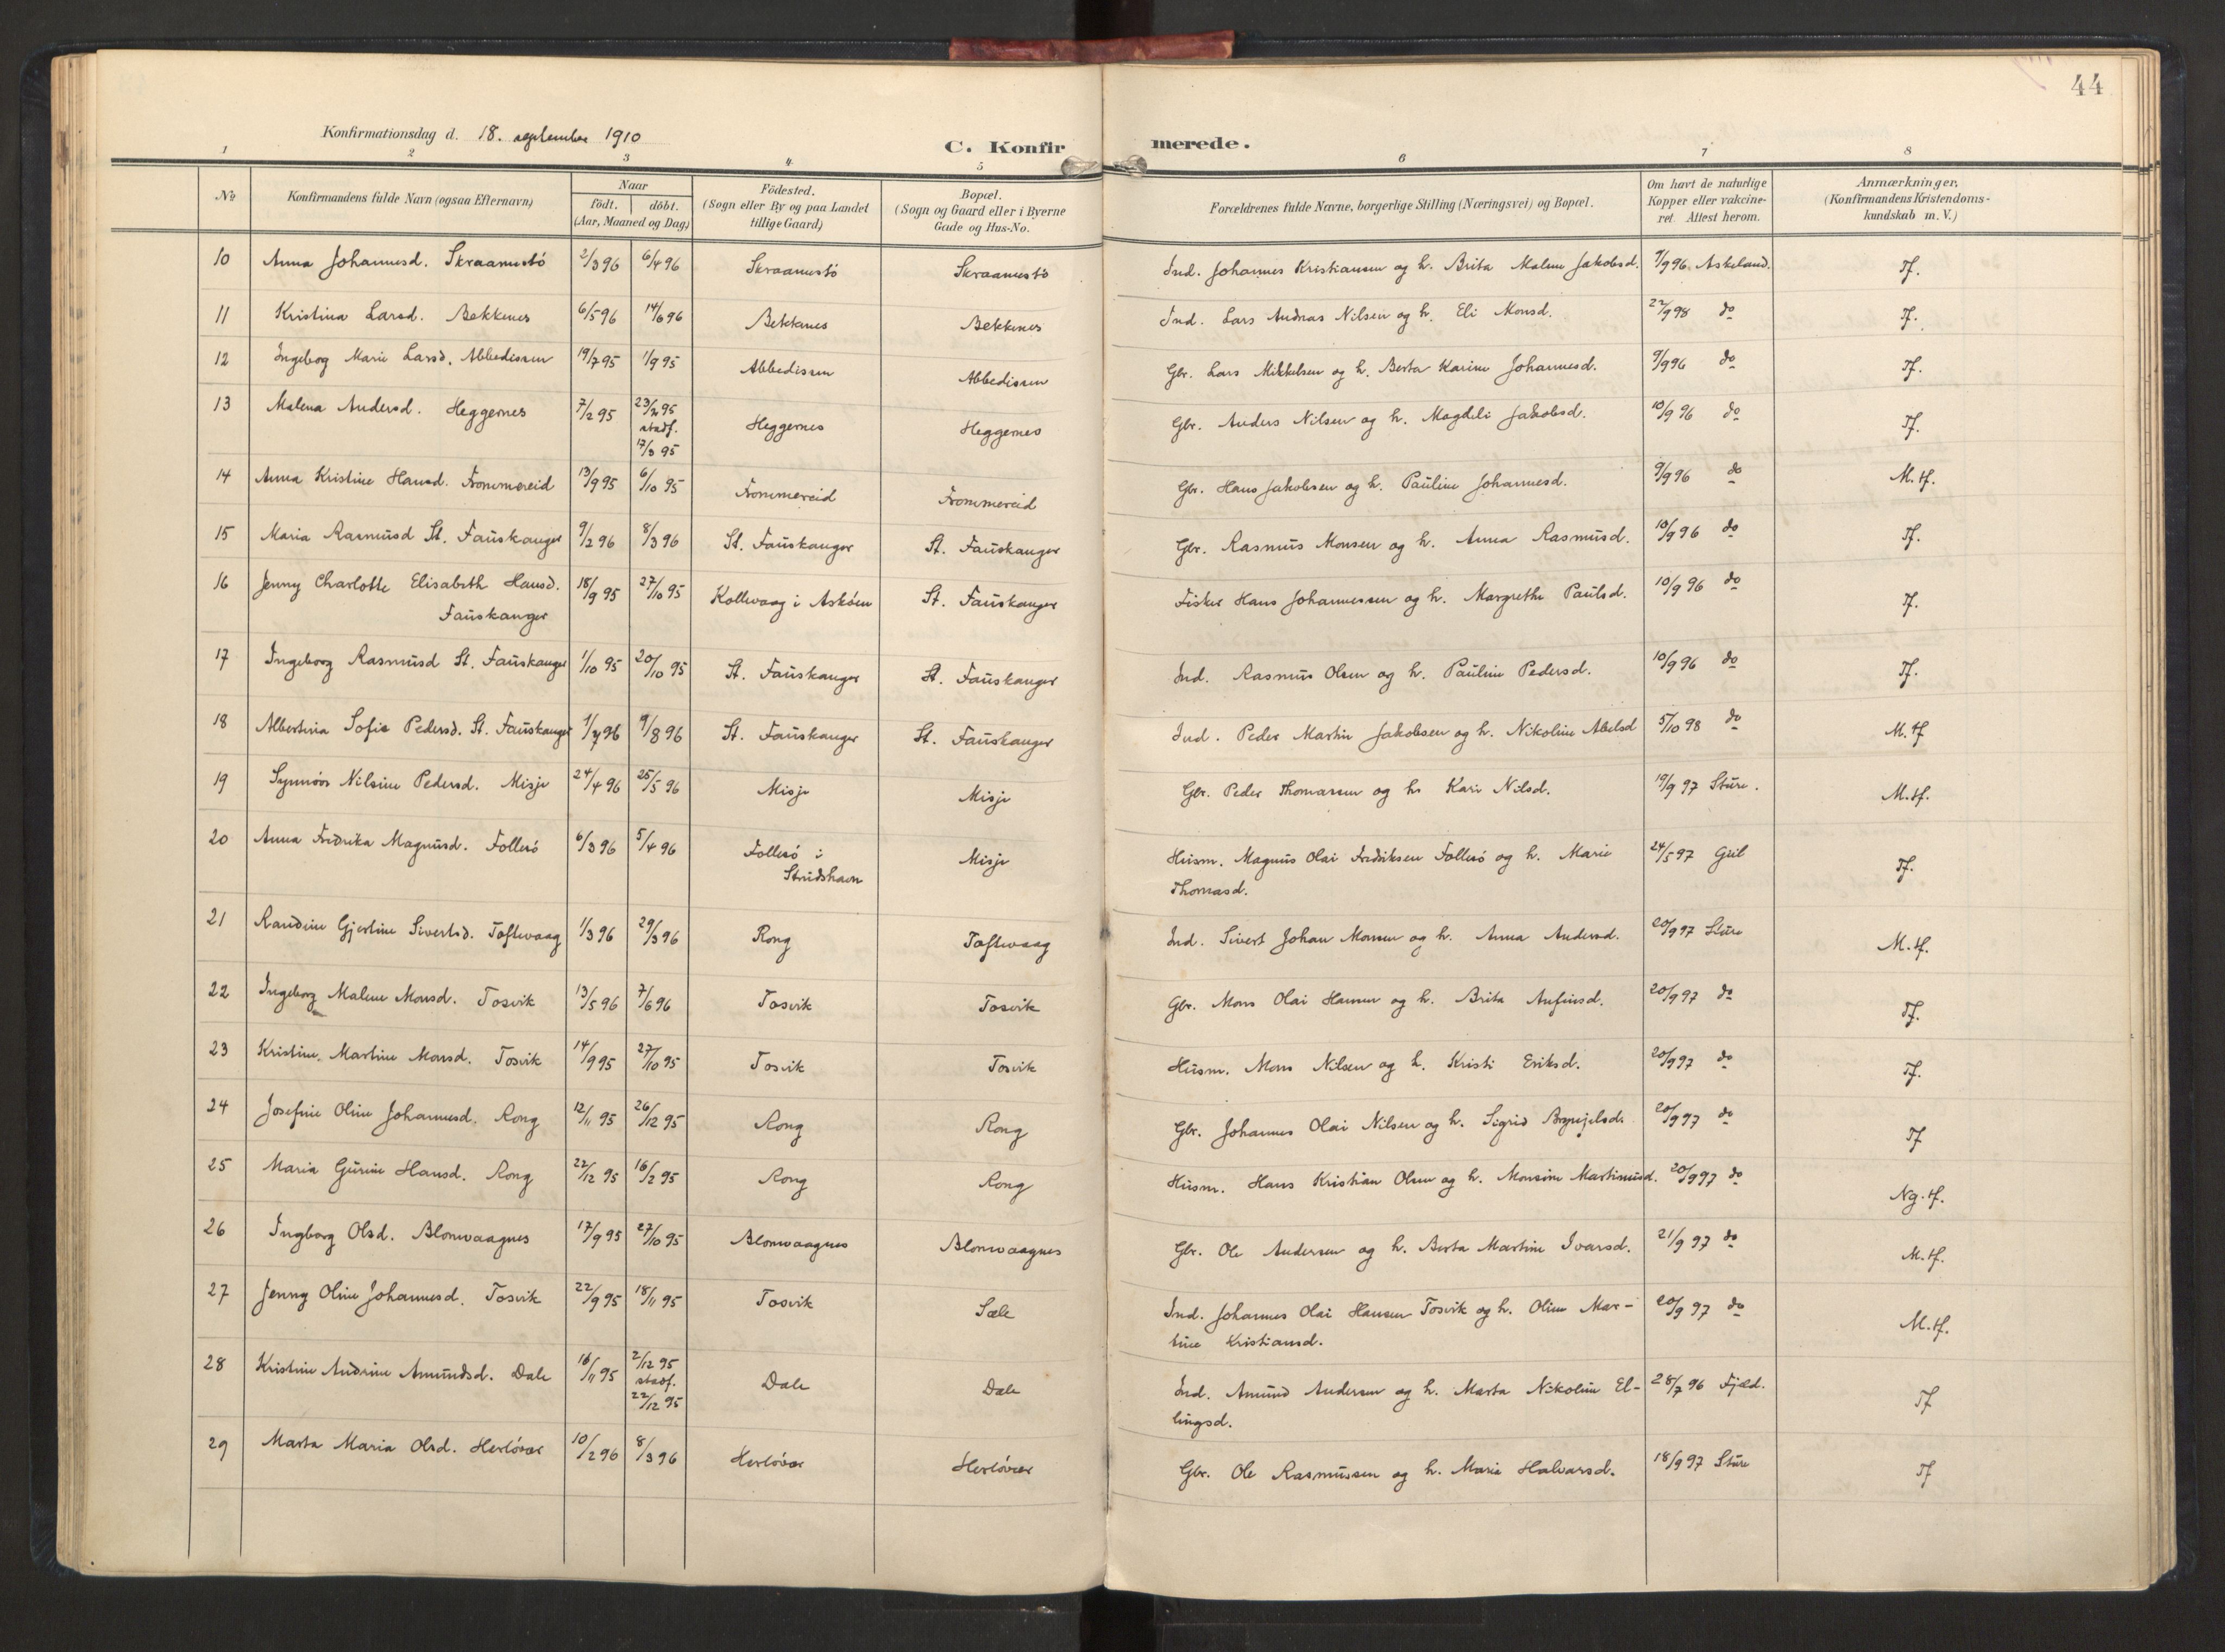 44
Konfirmationsdag d. 18. september 1910
C. Konfirmerede.
1 2 3 4 5 6 7 8
No Konfirmandens fulde Navn (ogsaa Efternavn) Naar født. døbt. (Aar, Maaned og Dag) Födested. (Sogn eller By og paa Landet tillige Gaard) Bopæl. (Sogn og Gaard eller i Byerne Gade og Hus-No. Forældrenes fulde Navne, borgerlige Stilling (Næringsvei) og Bopæl. Om havt de naturlige Kopper eller vakcineret. Attest herom. Anmærkninger. (Konfirmandens Kristendomskundskab m. V.)
10 Anna Johannesd. Skraamestö 2/3 96 6/4 96 Skraamestö Skraamestö Ind. Johannes Kristiansen og h. Brita Malene Jakobsd. 9/9 96 Askeland. Tf.
11 Kristina Larsd. Bekkenes 6/5 96 14/6 96 Bekkenes Bekkenes Ind. Lars Andreas Nilsen og h. Eli Monsd. 22/9 98 do Tf.
12 Ingeborg Marie Larsd. Abbedissen 19/7 95 1/9 95 Abbedissen Abbedissen Gbr. Lars Mikkelsen og h. Berta Karine Johannesd. 9/9 96 do Tf.
13 Malena Andersd. Heggernes 7/2 95 23/2 95 stadf. 17/3 95 Heggernes Heggernes Gbr. Anders Nilsen og h. Magdeli Jakobsd. 10/9 96 do Tf.
14 Anna Kristine Hansd. Frommereid 13/9 95 6/10 95 Frommereid Frommereid Gbr. Hans Jakobsen og h. Pauline Johannesd. 9/9 96 do M.tf.
15 Maria Rasmusd St. Fauskanger 9/2 96 8/3 96 St. Fauskanger St. Fauskanger Gbr. Rasmus Monsen og h. Anna Rasmusd. 10/9 96 do Tf.
16 Jenny Charlotte Elisabeth Hansd. 18/9 95 27/10 95 Kollevaag i Asköen St. Fauskanger Fisker Hans Johannessen og h. Margrethe Paulsd. 10/9 96 do Tf.
Fauskanger
17 Ingeborg Rasmusd St. Fauskanger 1/10 95 20/10 95 St. Fauskanger St. Fauskanger Ind. Rasmus Olsen og h. Pauline Pedersd. 10/9 96 do Tf.
18 Albertina Sofie Pedersd. St. Fauskanger 1/7 96 9/8 96 St. Fauskanger St. Fauskanger Ind. Peder Martin Jakobsen og h. Nikoline Abelsd 5/10 98 do M.tf
19 Synnöve Nilsine Pedersd. Misje 24/4 96 25/5 96 Misje Misje Gbr. Peder Thomassen og h. Kari Nilsd. 19/9 97 Sture. M.tf.
20 Anna Fredrika Magnusd. Follesö 6/3 96 5/4 96 Follesö i Misje Husm. Magnus Olai Fredriksen Follesö og h. Marie 24/5 97 Tf.
Strudshavn Thomasd.
21 Randine Gjertine Sivertsd. Toftevaag 1/3 96 29/3 96 Rong Toftevaag Ind. Sivert Johan Monsen og h. Anna Andersd. 20/9 97 Sture M.tf.
22 Ingeborg Malene Monsd. Tosvik 13/5 96 7/6 96 Tosvik Tosvik Gbr. Mons Olai Hansen og h. Brita Anfinsd. 20/9 97 do Tf.
23 Kristine Martine Monsd. Tosvik 14/9 95 27/10 95 Tosvik Tosvik Husm. Mons Nilsen og h. Kristi Eriksd. 20/9 97 do Tf.
24 Josefine Oline Johannesd. Rong 12/11 95 26/12 95 Rong Rong Gbr. Johannes Olai Nilsen og h. Sigrid Brynjelsd. 20/9 97 do Tf
25 Maria Gurine Hansd. Rong 22/12 95 16/2 95 Rong Rong Husm. Hans Kristian Olsen og h. Monsine Martinusd. 20/9 97 do Ng.tf.
26 Ingborg Olsd. Blomvaagnes 17/9 95 27/10 95 Blomvaagnes Blomvaagnes Gbr. Ole Andersen og h. Berta Martine Ivarsd. 21/9 97 do M.tf.
27 Jenny Oline Johannesd. Tosvik 22/9 95 18/11 95 Tosvik Sæle Ind. Johannes Olai Hansen Tosvik og h. Oline Mar- 20/9 97 do M.tf.
tine Kristiansd.
28 Kristine Andrine Amundsd. Dale 16/11 95 2/12 95 stadf. 22/12 95 Dale Dale Ind. Amund Andersen og h. Marta Nikoline El- 28/7 96 Fjæld. Tf
lingsd.
29 Marta Maria Olsd. Herlövær 10/2 96 8/3 96 Herlövær Herlövær Gbr. Ole Rasmussen og h. Marie Halvarsd. 18/9 97 Sture Tf